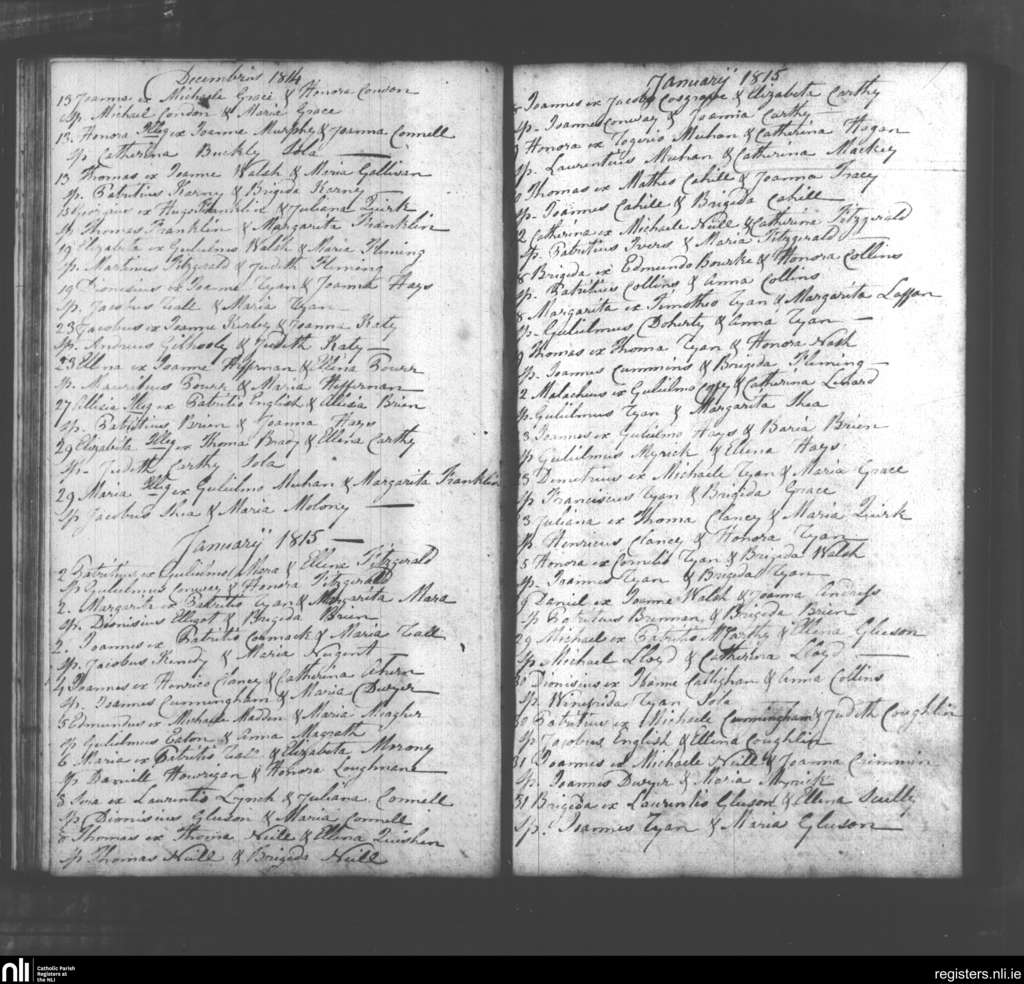 Decembris 1814
13 Joannes ex Michaele Grace & Honora Condon
Sp. Michael Condon & Maria Grace
13. Honora Illeg ex Joanne Murphy & Joanna Connell
Sp. Catherina Buckly Sola
13 Thomas ex Joanne Walsh & Maria Gallivan
Sp. Patritius Karny & Brigida Karny
15 Georgius ex Hugo Franklin & Juliana Quirk
Sp Thomas Franklin & Margarita Franklin
19 Elizabeta ex Gulielmo Walsh & Maria Fleming
Sp. Martinus Fitzgerald & Judith Fleming
19 Dionisius ex Joanne Ryan & Joanna Hays
Sp. Jacobus Tall & Maria Ryan
23 Jacobus ex Joanne Kirby & Joanna Katy
Sp. Andreas Gilhooly & Judith Katy
23 Ellena ex Joanne Heffernan & Ellena Pourr
Sp. Mauritius Pourr & Maria Heffernan
27 Allicia Illeg ex Patritio English & Allicia Brien
Sp. Patritius Brien & Joanna Hays
29 Elizabeta Illeg ex Thoma Brady & Ellena Carthy
Sp. Judith Carthy Sola
29 Maria Illeg ex Gulielmo Muhan & Margarita Franklin
Sp Jacobus Shea & Maria Molony
Januarij 1815
2 Patritius ex Gulielmo Mara & Ellena Fitzgerald
Sp Gulielmus Conway & Honora Fitzgerald
2. Margarita ex Patritio Ryan & Margarita Mara
Sp. Dionisius Elligot & Brigida Brien
2. Joannes ex Patritio Cormack & Maria Tall
Sp. Jacobus Kenedy & Maria Nugent
4 Joannes ex Henrico Clancy & Catherina Ahern
Sp. Joannes Cunningham & Maria Dwyer
5 Edmundus ex Michaele Madden & Maria Meagher
Sp Gulielmus Eaton & Anna Magrath
6 Maria ex Patritio Tall & Elizabeta Morony
Sp Daniell Hourigan & Honora Loughnane
8 ex Laurentio Lynch & Juliana Connell
Sp Dionisius Gleeson & Maria Connell
8 Thomas ex Thoma Neill & Ellena
Sp Thomas Neill & Brigida Neill
Januarij 1815
Joannes ex Jacobo Cosgrave & Elizabeta Carthy
Sp. Joannes Conway & Joanna Carthy
Honora ex Rogerio Muhan & Catherina Hogan
Sp. Laurentius Muhan & Catherina Mackey
Thomas ex Matheo Cahill & Joanna Tracy
Sp. Joannes Cahill & Brigida Cahill
2 Catherina ex Michaele Neill & Catherina Fitzgerald
Sp. Patritius Ivers & Maria Fitzgerald
8 Brigida ex Edmundo Bourke & Honora Collins
Sp. Patritius Collins & Anna Collins
8 Margarita ex Timotheo Ryan & Margarita Laffan
Sp. Gulielmus Doherty & Anna Ryan
9 Thomas ex Thoma Ryan & Honora Nash
Sp. Joannes Cummins & Brigida Fleming
2 Malacheus ex Gulielmo & Catherina Lenard
Sp. Gulielmus Ryan & Margarita Shea
3 Joannes ex Gulielmo Hays & Baria Brien
Sp Gulielmus Myrick & Ellena Hays
23 Demetrius ex Michaele Ryan & Maria Grace
Sp Franciscus Ryan & Brigida Grace
23 Juliana ex Thoma Clancy & Maria Quirk
Sp. Henricus Clancy & Honora Ryan
5 Honora ex Cornelio Ryan & Brigida Walsh
Sp. Joannes Ryan & Brigida Ryan
9 Daniel ex Joanne Walsh & Joanna Andrefs
Sp Patritius Brennan, & Brigida Brien
29 Michael ex Patritio McCarthy & Ellena Gleeson
Sp Michael Lloyd & Catherina Lloyd
30 Dionisius ex Joanne Callighan & Anna Collins
Sp. Winefrida Ryan Sola
30 Patritius ex Michaele Cunningham & Judith Coughlin
Sp Jacobus English & Ellena Coughlin
31 Joannes ex Michaele Neill & Joanna Crimmin
Sp. Joannes Dwyer & Maria Myrick
31 Brigida ex Laurentio Gleeson & Ellena Scully
Sp. Joannes Ryan & Maria Gleeson
nli
Catholic Parish
Registers at
the NLI
registers.nli.ie